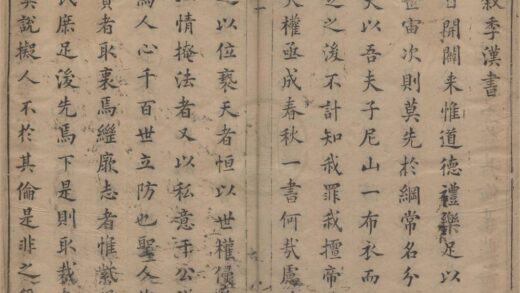 季漢書
開闢来惟道德禮樂足以
宙次則莫先於綱常名分
以吾夫子尼山一布衣而
之後不計知我罪我擅帝
大權亟成春秋一書何㢤處
之以位褻天者恒以世權僭
情掩法者又以私意于公
爲人心千百世立防也聖人
者取裏焉繼厥志者惟紫
足後先焉下是則取裁
其說擬人不於其倫是非之